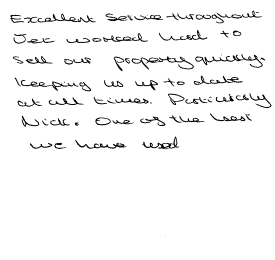 Excellent Service throughout
Jet worked hard to
sell our property quickly.
Keeping us up to date
at all times. Particularly
Nick. One of the best
we have used